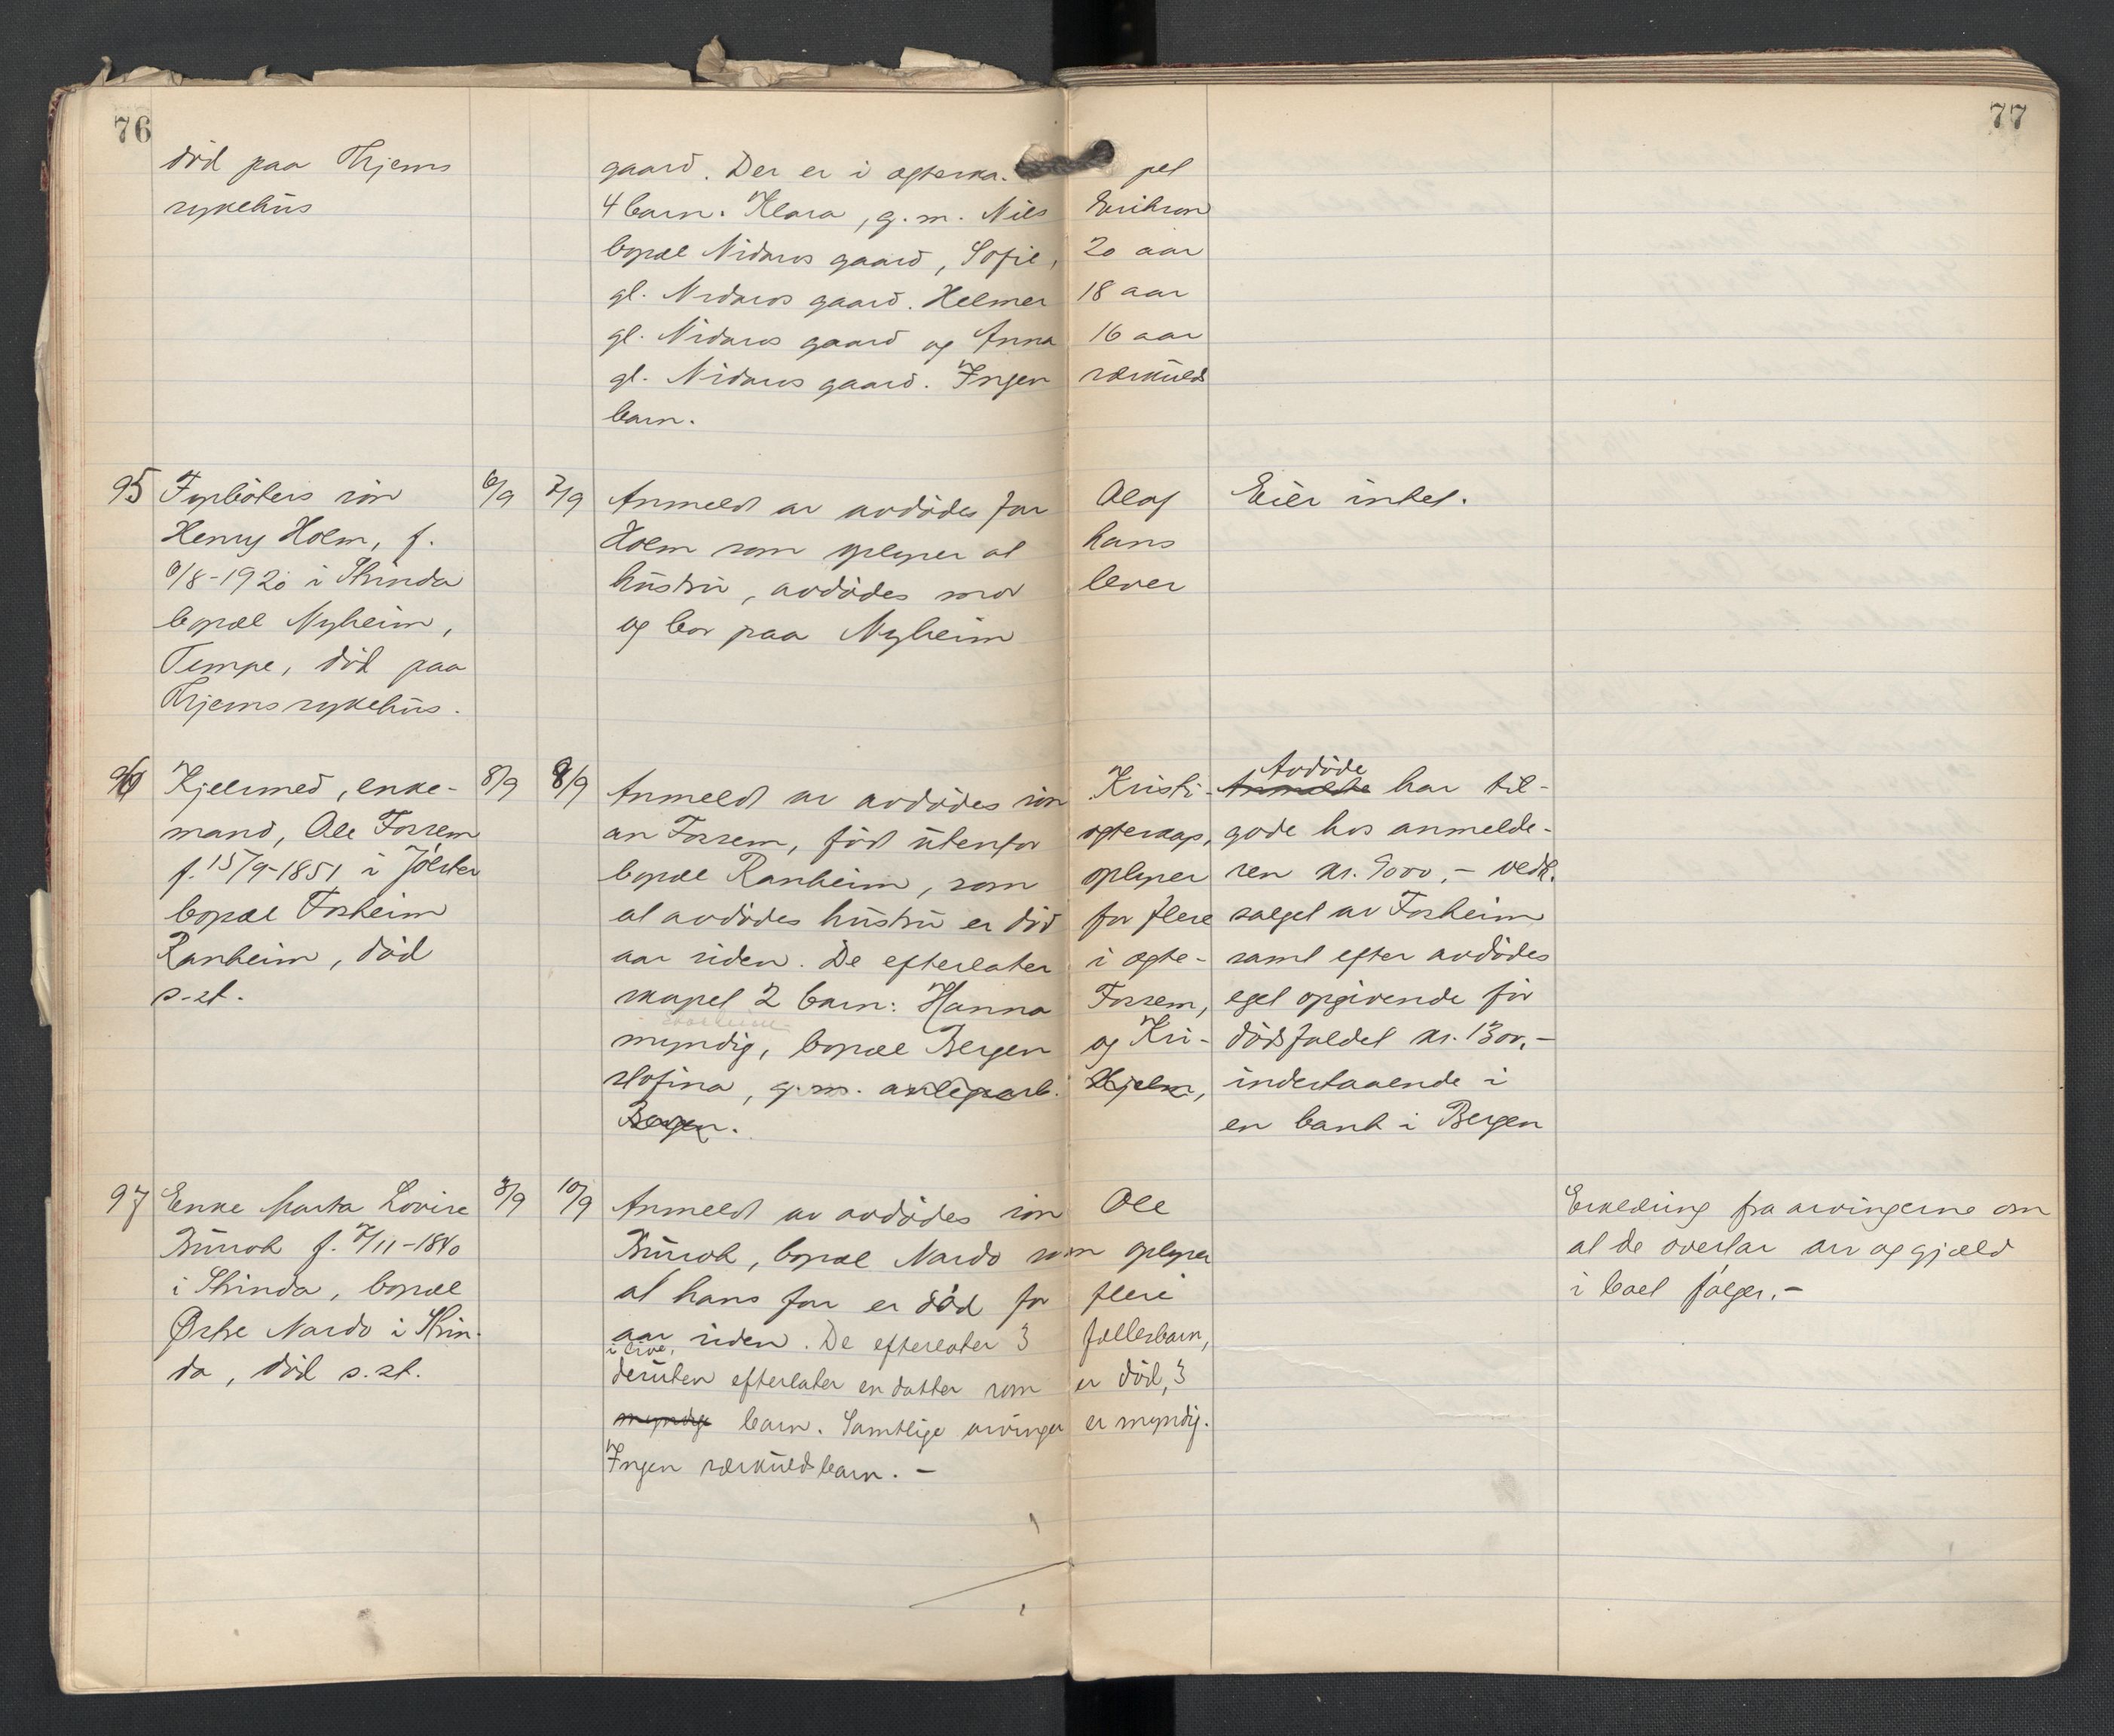 76
77
død paa Thjems
sykehus
gaard. Der er i ægteska- pet
4 barn. Klara, g. m. Nils Erikson
bopæl Nidaros gaard, Sofie, 20 aar
gl. Nidaros gaard. Helmer 18 aar
gl. Nidaros gaard og Anna 16 aar
gl. Nidaros gaard. Ingen særkulds
barn.
95 Fyrbøters søn 6/9 7/9 Anmeldt av avdødes far Olaf Eier intet.
Henry Holm, f. Holm som oplyser at hans
6/8-1920 i Strinda hustru, avdødes mor lever
bopæl Nyheim, og bor paa Nyheim
Tempe, død paa
Thjems sykehus.
96 Kjelsmed, enke- 8/9 8/9 Anmeldt av avdødes søn Kristi- Anmeldte Avdøde har til-
mand, Ole Fossem an Fossem, født utenfor ægteskap, gode hos anmelde-
f. 15/9-1851 i Jølster bopæl Ranheim, som oplyser ren kr. 9000,- vedk.
bopæl Fosheim at avdødes hustru er død for flere salget av Fosheim
Ranheim, død aar siden. De efterlater i ægte- samt efter avdødes
s. st. skapet 2 barn: Hanna Fossem, eget opgivende før
myndig, bopæl Bergen og Kri- dødsfaldet kr. 1300,-
stofina, g. m. anlægsarb. Hjelm, indestaaende i
Bergen. en bank i Bergen
97 Enke Marta Lovise 3/9 10/9 Anmeldt av avdødes søn Ole Erklæring fra arvingerne om
Buvok f. 7/11-1840 Buvok, bopæl Nardo som oplyser at de overtar arv og gjæld
i Strinda, bopæl at hans far er død for flere i boet følger.-
Østre Nardo i Strin- aar siden. De efterlater 3 fællesbarn,
i live,
da, død s. st. desuten efterlater en datter som er død, 3
myndige barn. Samtlige arvinger er myndig.
Ingen særkuldsbarn. -